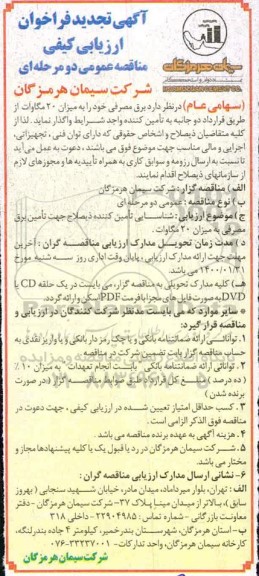 آگهی تجدید فراخوان
ارزیابی کیفی
مناقصه عمومی دو مرحله ای
سیمان هرمزگان
شرکت سیمان هرمزگان
(سهامی عام) در نظر دارد برق مصرفی خود را به میزان ۲۰ مگاوات از
طریق قرارداد دو جانبه به تأمین کننده واجد شرایط واگذار نماید. لذا از
کلیه متقاضیان ذیصلاح و اشخاص حقوقی که دارای توان فنی، تجهیزاتی،
اجرایی و مالی مناسب جهت موضوع فوق می باشند، دعوت به عمل می آید
تا نسبت به ارسال رزومه و سوابق کاری به همراه تأییدیه ها و مجوزهای لازم
از سازمانهای ذیصلاح اقدام نمایند.
الف) مناقصه گزار: شرکت سیمان هرمزگان
ب) نوع مناقصه: عمومی دو مرحله ای
ج) موضوع ارزیابی: شناسایی تأمین کننده ذیصلاح جهت تأمین برق
مصرفی به میزان ۲۰ مگاوات.
د) مدت زمان تحویل مدارک ارزیابی مناقصه گران: آخرین
مهلت جهت ارائه مدارک ارزیابی، پایان وقت اداری روز سه شنبه مورخ
۱۴۰۰/۰۱/۳۱ می باشد.
هـ) کلیه مدارک تحویلی به مناقصه گزار، می بایست در یک حلقه CD یا
DVD به صورت فایل های مجزا با فرمت PDF اسکن و ارائه گردد.
* سایر مواردی که می بایست مدنظر شرکت کنندگان در ارزیابی و
مناقصه قرار گیرد:
۱. توانایی ارائه ضمانتنامه بانکی و یا چک رمز دار بانکی و یا واریز نقدی به
حساب مناقصه گزار بابت تضمین شرکت در مناقصه
۲. توانائی ارائه ضمانتنامه بانکی بابت انجام تعهدات به میزان ۱۰٪
(ده درصد) مبلغ کل قرارداد
۳. کسب حداقل امتیاز تعیین شده در ارزیابی کیفی، جهت دعوت در
مناقصه فوق الذکر الزامی است.
۴. هزینه آگهی به عهده برنده مناقصه می باشد.
۵. شرکت سیمان هرمزگان در رد یا قبول یک یا کلیه پیشنهادها مجاز و
مختار می باشد.
۶- نشانی ارسال مدارک ارزیابی مناقصه گران:
الف: تهران، بلوار میرداماد، میدان مادر، خیابان شهید سنجابی (بهروز
سابق)، بالاتر از میدان مینا پلاک ۳۷- شرکت سیمان هرمزگان - دفتر
معاونت بازرگانی - شماره تماس: ۲۲۹۰۴۹۸۵ - داخلی ۳۱۸
ب- استان هرمزگان، شهرستان بندرخمیر، کیلومتر ۴ جاده بندرلنگه،
کارخانه سیمان هرمزگان، واحد تدارکات- ۳۳۳۳۷۰۰۱-۰۷۶
شرکت سیمان هرمزگان